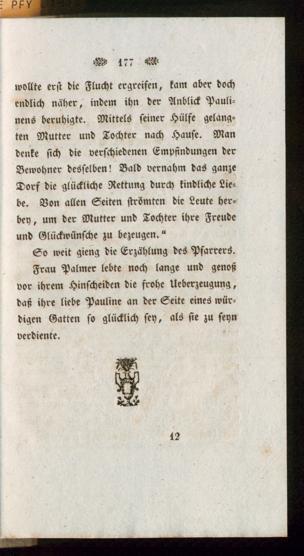 E PFY
177
wollte erst die Flucht ergreifen, kam aber doch
endlich näher, indem ihn der Anblick Pauli-
nens beruhigte. Mittels seiner Hülfe gelang-
ten Mutter und Tochter nach Hause. Man
denke sich die verschiedenen Empfindungen der
Bewohner desselben! Bald vernahm das ganze
Dorf die glückliche Rettung durch kindliche Lie-
be. Von allen Seiten strömten die Leute her-
bey, um der Mutter und Tochter ihre Freude
und Glückwünsche zu bezeugen.“
So weit gieng die Erzählung des Pfarrers.
Frau Palmer lebte noch lange und genoß
vor ihrem Hinscheiden die frohe Ueberzeugung,
daß ihre liebe Pauline an der Seite eines wür-
digen Gatten so glücklich sey, als sie zu seyn
verdiente.
12